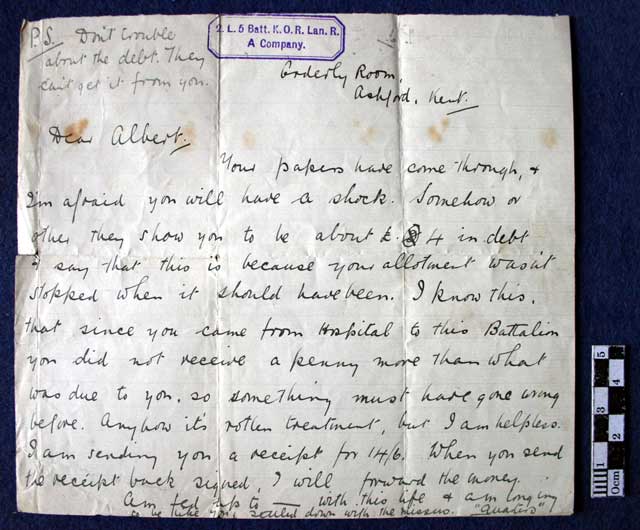 P.S. Don't trouble
about the debt. They
can't get it from you.
2. L. 5 Batt. K. O. R. Lan. R.
A Company.
Orderly Room,
Ashford, Kent.
Dear Albert,
Your papers have come through, &
I'm afraid you will have a shock. Somehow or
other they show you to be about £. 4 in debt
& say that this is because your allotment wasn't
stopped when it should have been. I know this,
that since you came from Hospital to this Battalion
you did not receive a penny more than what
was due to you, so something must have gone wrong
before. Anyhow it's rotten treatment, but I am helpless.
I am sending you a receipt for 14/6. When you send
the receipt back signed, I will forward the money.
Am fed up to — with this life & am longing
to be like you, settled down with the missus. "Quakers"
0cm 1 2 3 4 5